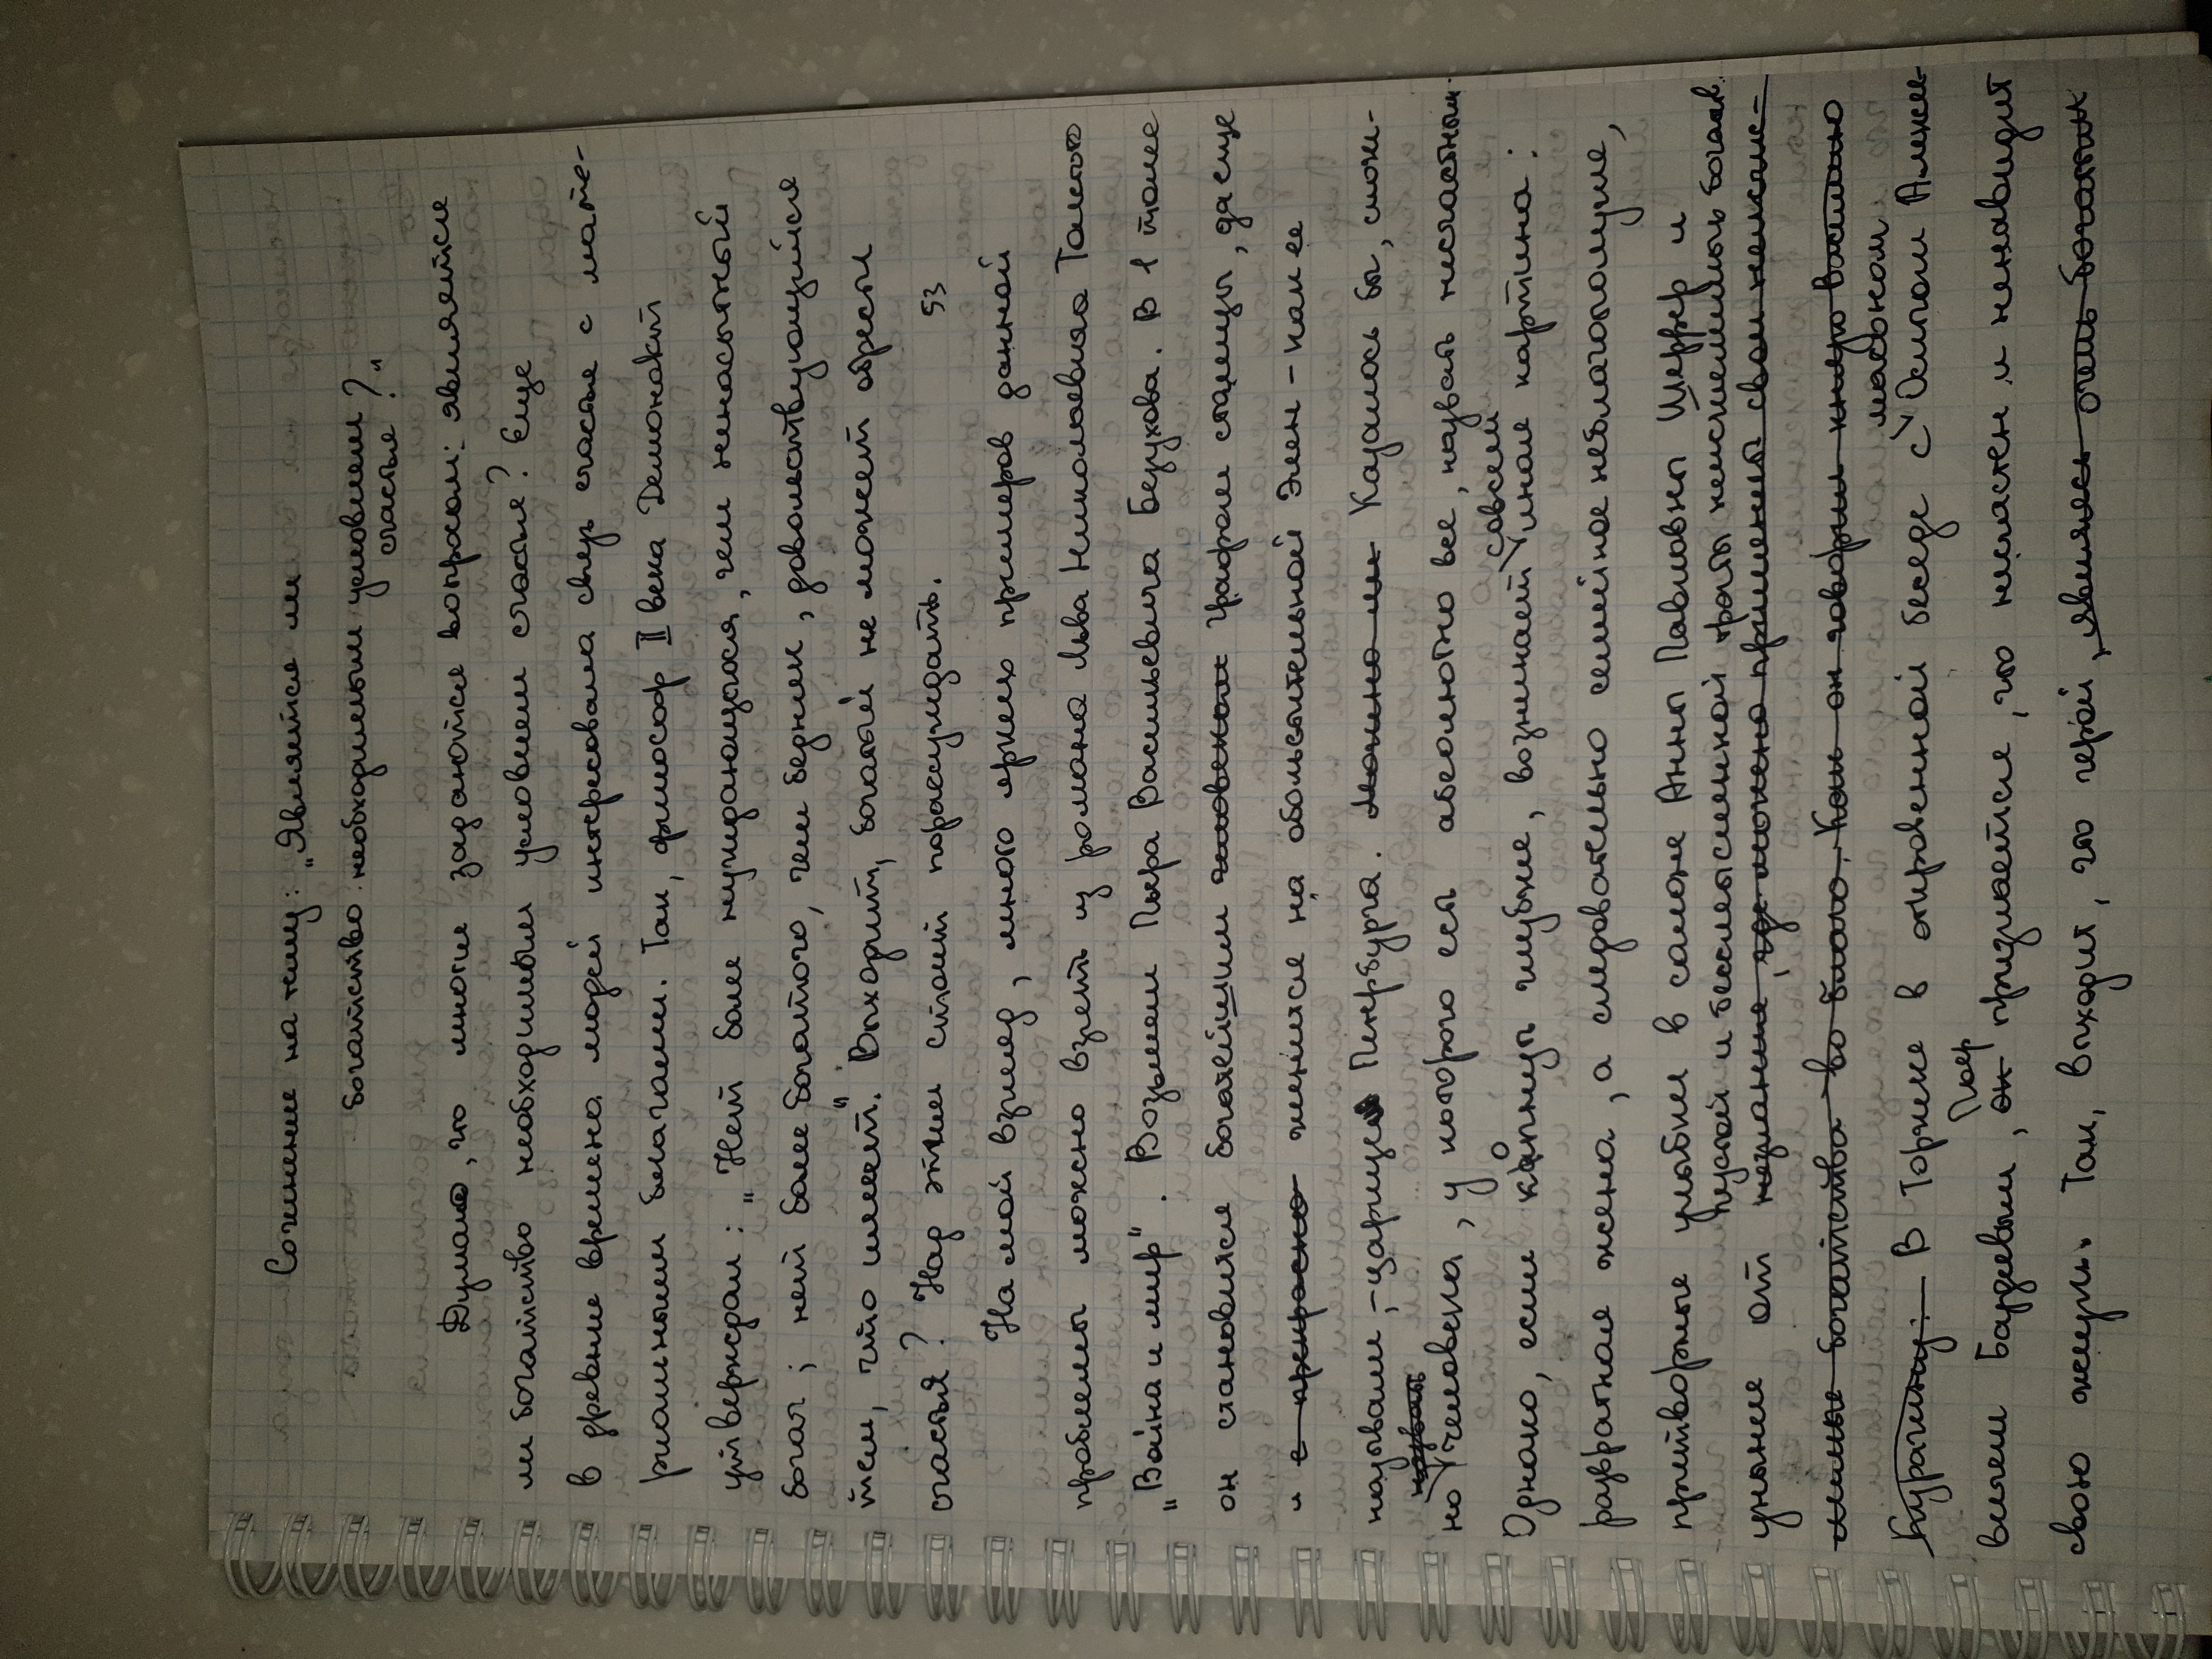 Сочинение на тему: „Является ли
богатство необходимым условием
счастье?"
Думаю, что многие задаются вопросом: является
ли богатство необходимым условием счастья? Еще
в древние времена людей интересовала связь счастье с мате-
риальными благами. Так, философ II века Демонакт
утверждал: „Нет более нуждающегося, чем ненасытный
богач; нет более богатого, чем бедняк, довольствующийся
тем, что имеет." Выходит, богатый не может обрести
счастья? Над этим стоит порассуждать. 53
На мой взгляд, много ярких примеров данной
проблемы можно взять из романа Льва Николаевича Толстого
„Война и мир". Возьмем Пьера Васильевича Безухова. В 1 томе
он становится богатейшим человеком графом столицы, да еще
и с прекрасно женится на обольстительной Элен - как ее
называли, - царице Петербурга. Можно ли Казалось бы, сложи-
но человека, у которого есть абсолютно все, назвать несчастным.
Однако, если копнуть глубже, возникает совсем иная картина:
развратная жена, а следовательно семейное неблагополучие,
притворные улыбки в салоне Анны Павловны Шерер и
пустой и бессмысленной траты неисчислимых богатств
уныние от незнания, где можно применить свои немысл-
лимые богатства во благо. Как он говорил князю Василию
Курагину: В Торжке в откровенной беседе с масоном Осипом Алексе-
евичем Баздеевым, он Пьер признается, что несчастен и ненавидит
свою жизнь. Так, выходит, что герой, являясь очень богатым